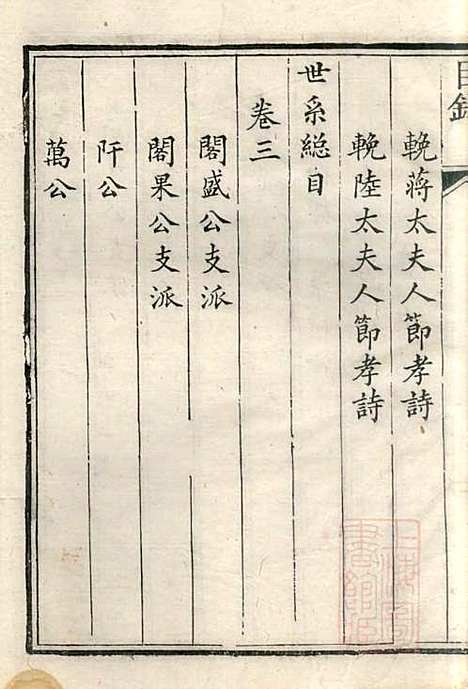 目錄
輓蔣太夫人節孝詩
輓陸太夫人節孝詩
世系総目
卷三
閣盛公支派
閣果公支派
阡公
萬公
上海圖書館藏